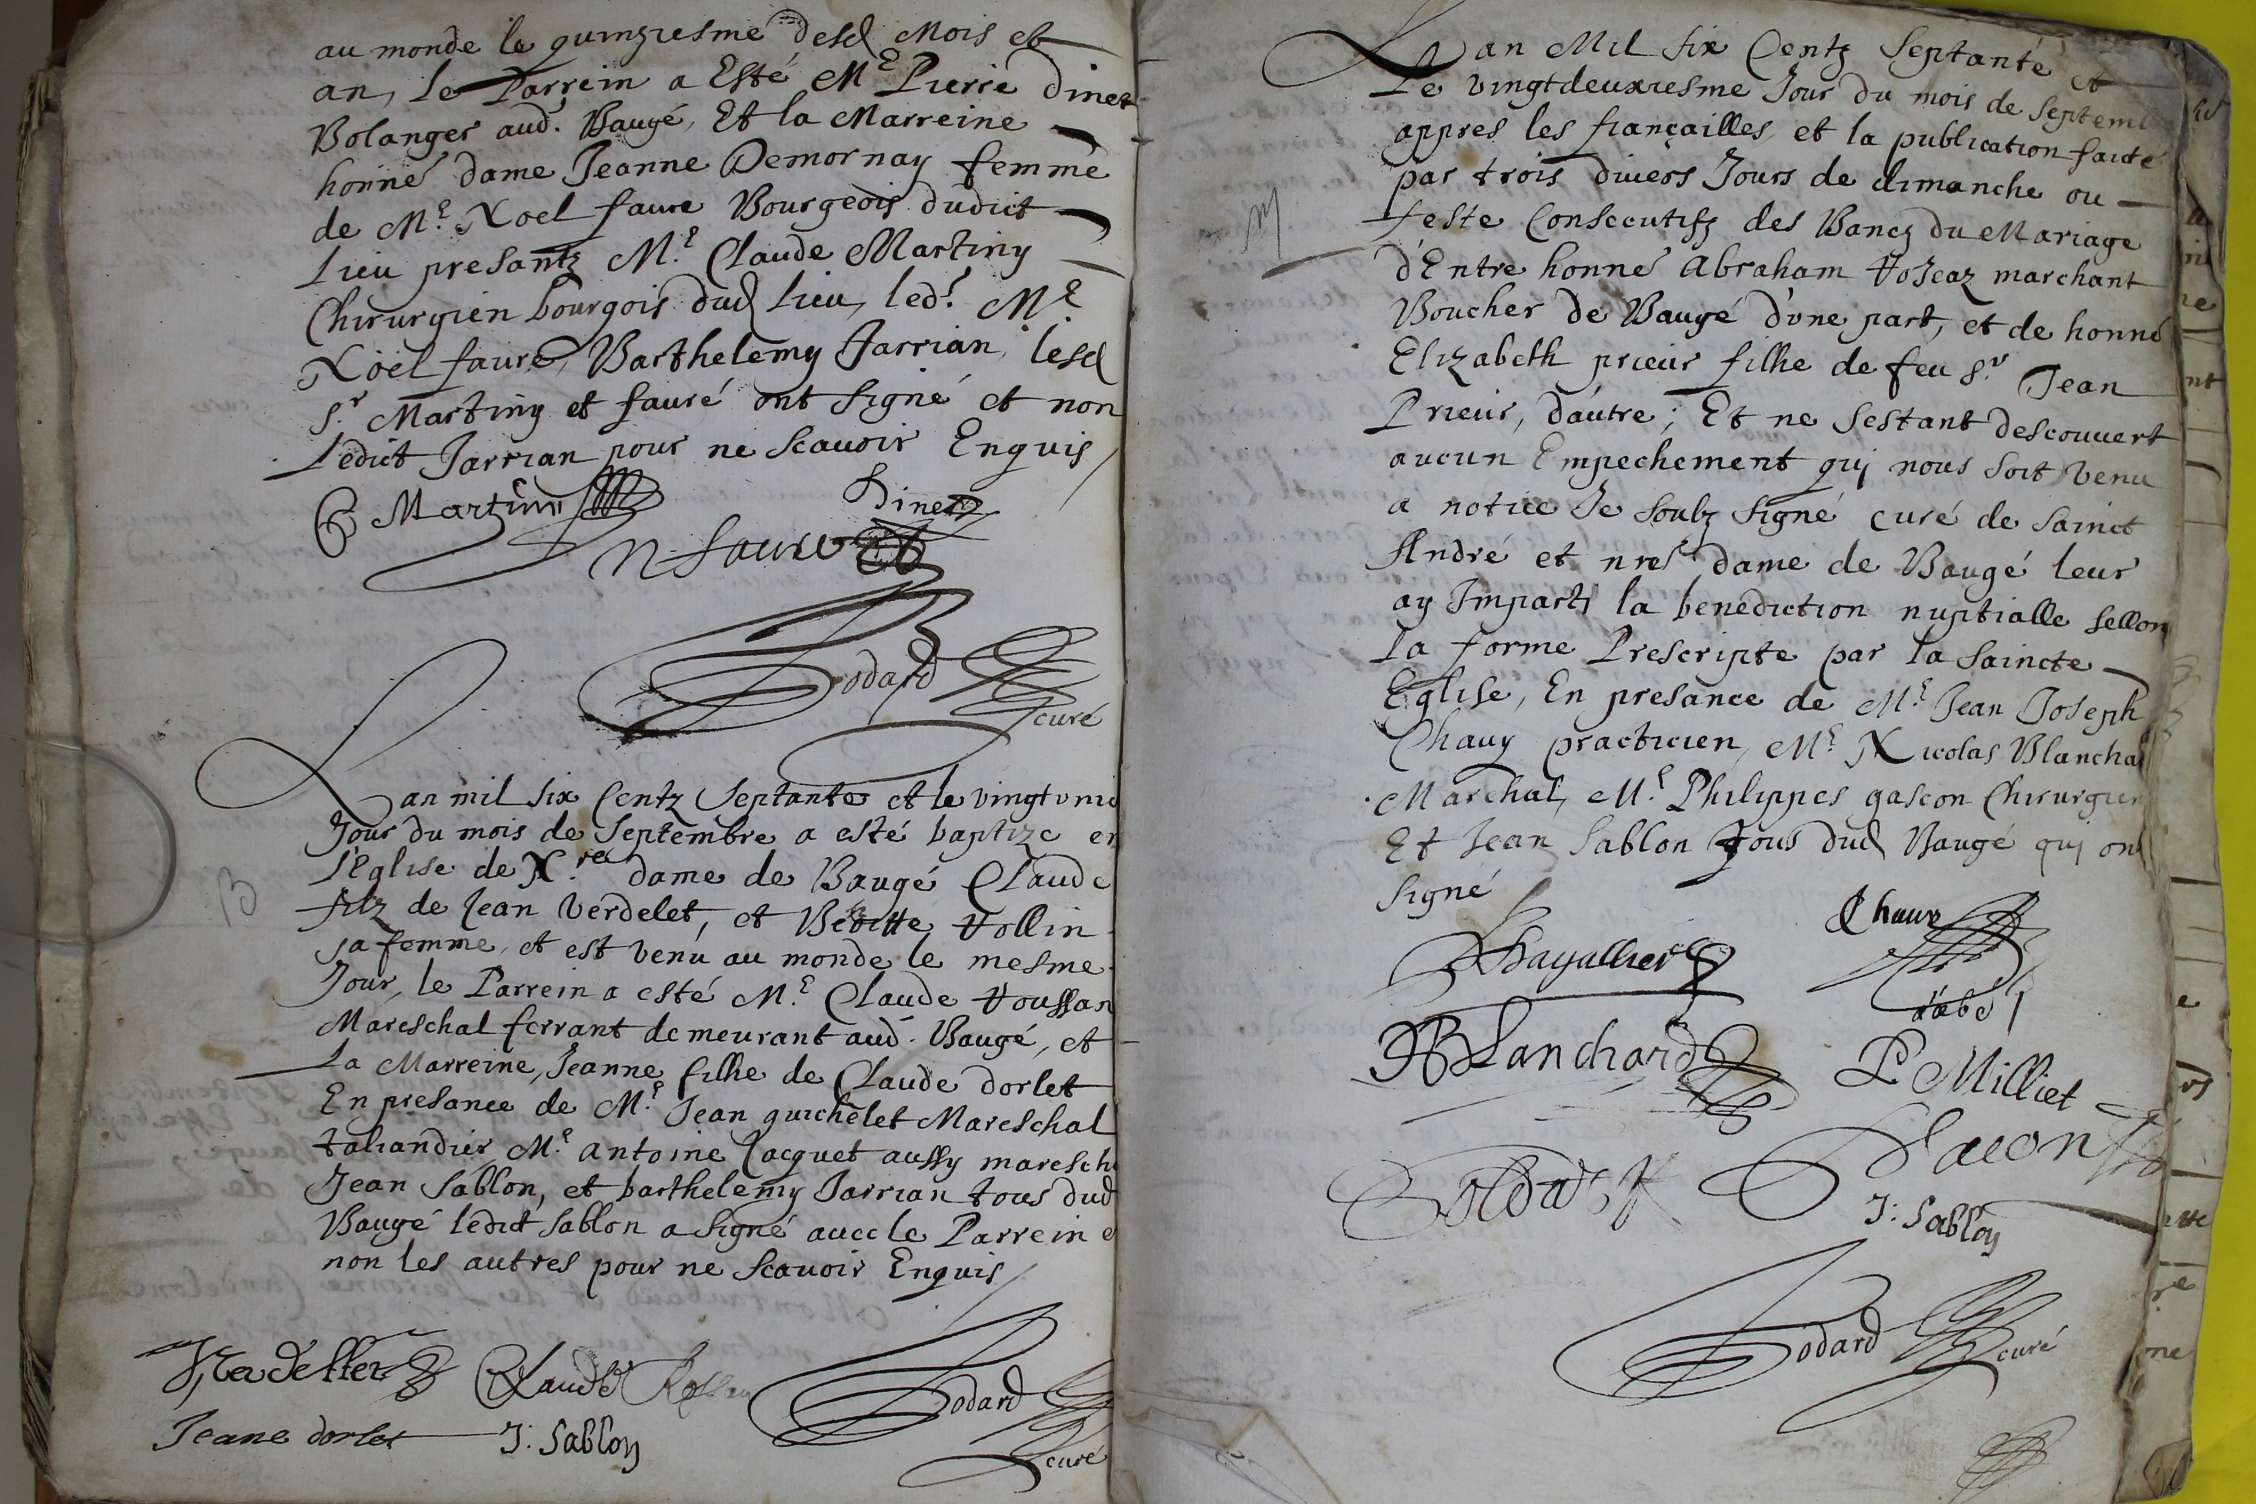 au monde le quinziesme desd Mois et
an, le Parrein a Esté Me Pierre dinet
Bolanger aud. Baugé, Et la Marreine
honné dame Jeanne Demornay femme
de Me. Noel faure Bourgeois dudict
Lieu presantz Me. Claude Martiny
Chirurgien bourgois dud Lieu, led. Me
Noel faure, Barthelemy Jarrian, lesd
Sr Martiny et fauré ont signé et non
Ledict Jarrian pour ne scavoir Enquis
C Martiny
Dinet
N faure
Bodard
curé
Lan mil six Centz Septante et le vingt unie
Jour du mois de Septembre a esté baptize en
L'Eglise de Nre dame de Baugé Claude
filz de Jean Verdelet, et Benoitte Vollin
sa femme, et est venu au monde le mesme
Jour, le Parrein a esté Me Claude Voussan
Mareschal ferrant demeurant aud. Baugé, et
La Marreine, Jeanne filhe de Claude dorlet
En presance de Me. Jean guichelet Mareschal
taliandier, Me antoine Jacquet aussy maresch
Jean Sablon, et barthelemy Jarrian tous dud
Baugé ledict sablon a signé avec le Parrein e
non les autres pour ne Scavoir Enquis
Claude
Bodard
Jeane dorlet
J: Sablon
curé
B
Lan Mil six Centz Septante et
Le vingtdeuxiesme Jour du mois de Septemb
appres les fiançailles, et la publication faicte
par trois divers Jours de dimanche ou
feste Consecutifz des Bancz du Mariage
d'Entre honné Abraham Vojeaz marchant
Boucher de Baugé d'vne part, et de honné
Elizabeth prieur filhe de feu Sr Jean
Prieur, dautre; Et ne sestant descouvert
aucun Empechement qui nous soit venu
a notice Je soubz signé curé de Sainct
André et nre dame de Baugé leur
ay Imparti la benediction nuptialle sellon
La forme Prescripte par la Saincte
Eglise, En presance de Me Jean Joseph
Chavy practicien, Me Nicolas Blancha
Marchal, Me. Philippes gascon Chirurgien
Et Jean Sablon Tous dud Baugé qui on
signé
M
Bayallier
Blanchard
P Milliet
J: Sablon
Bodard
curé